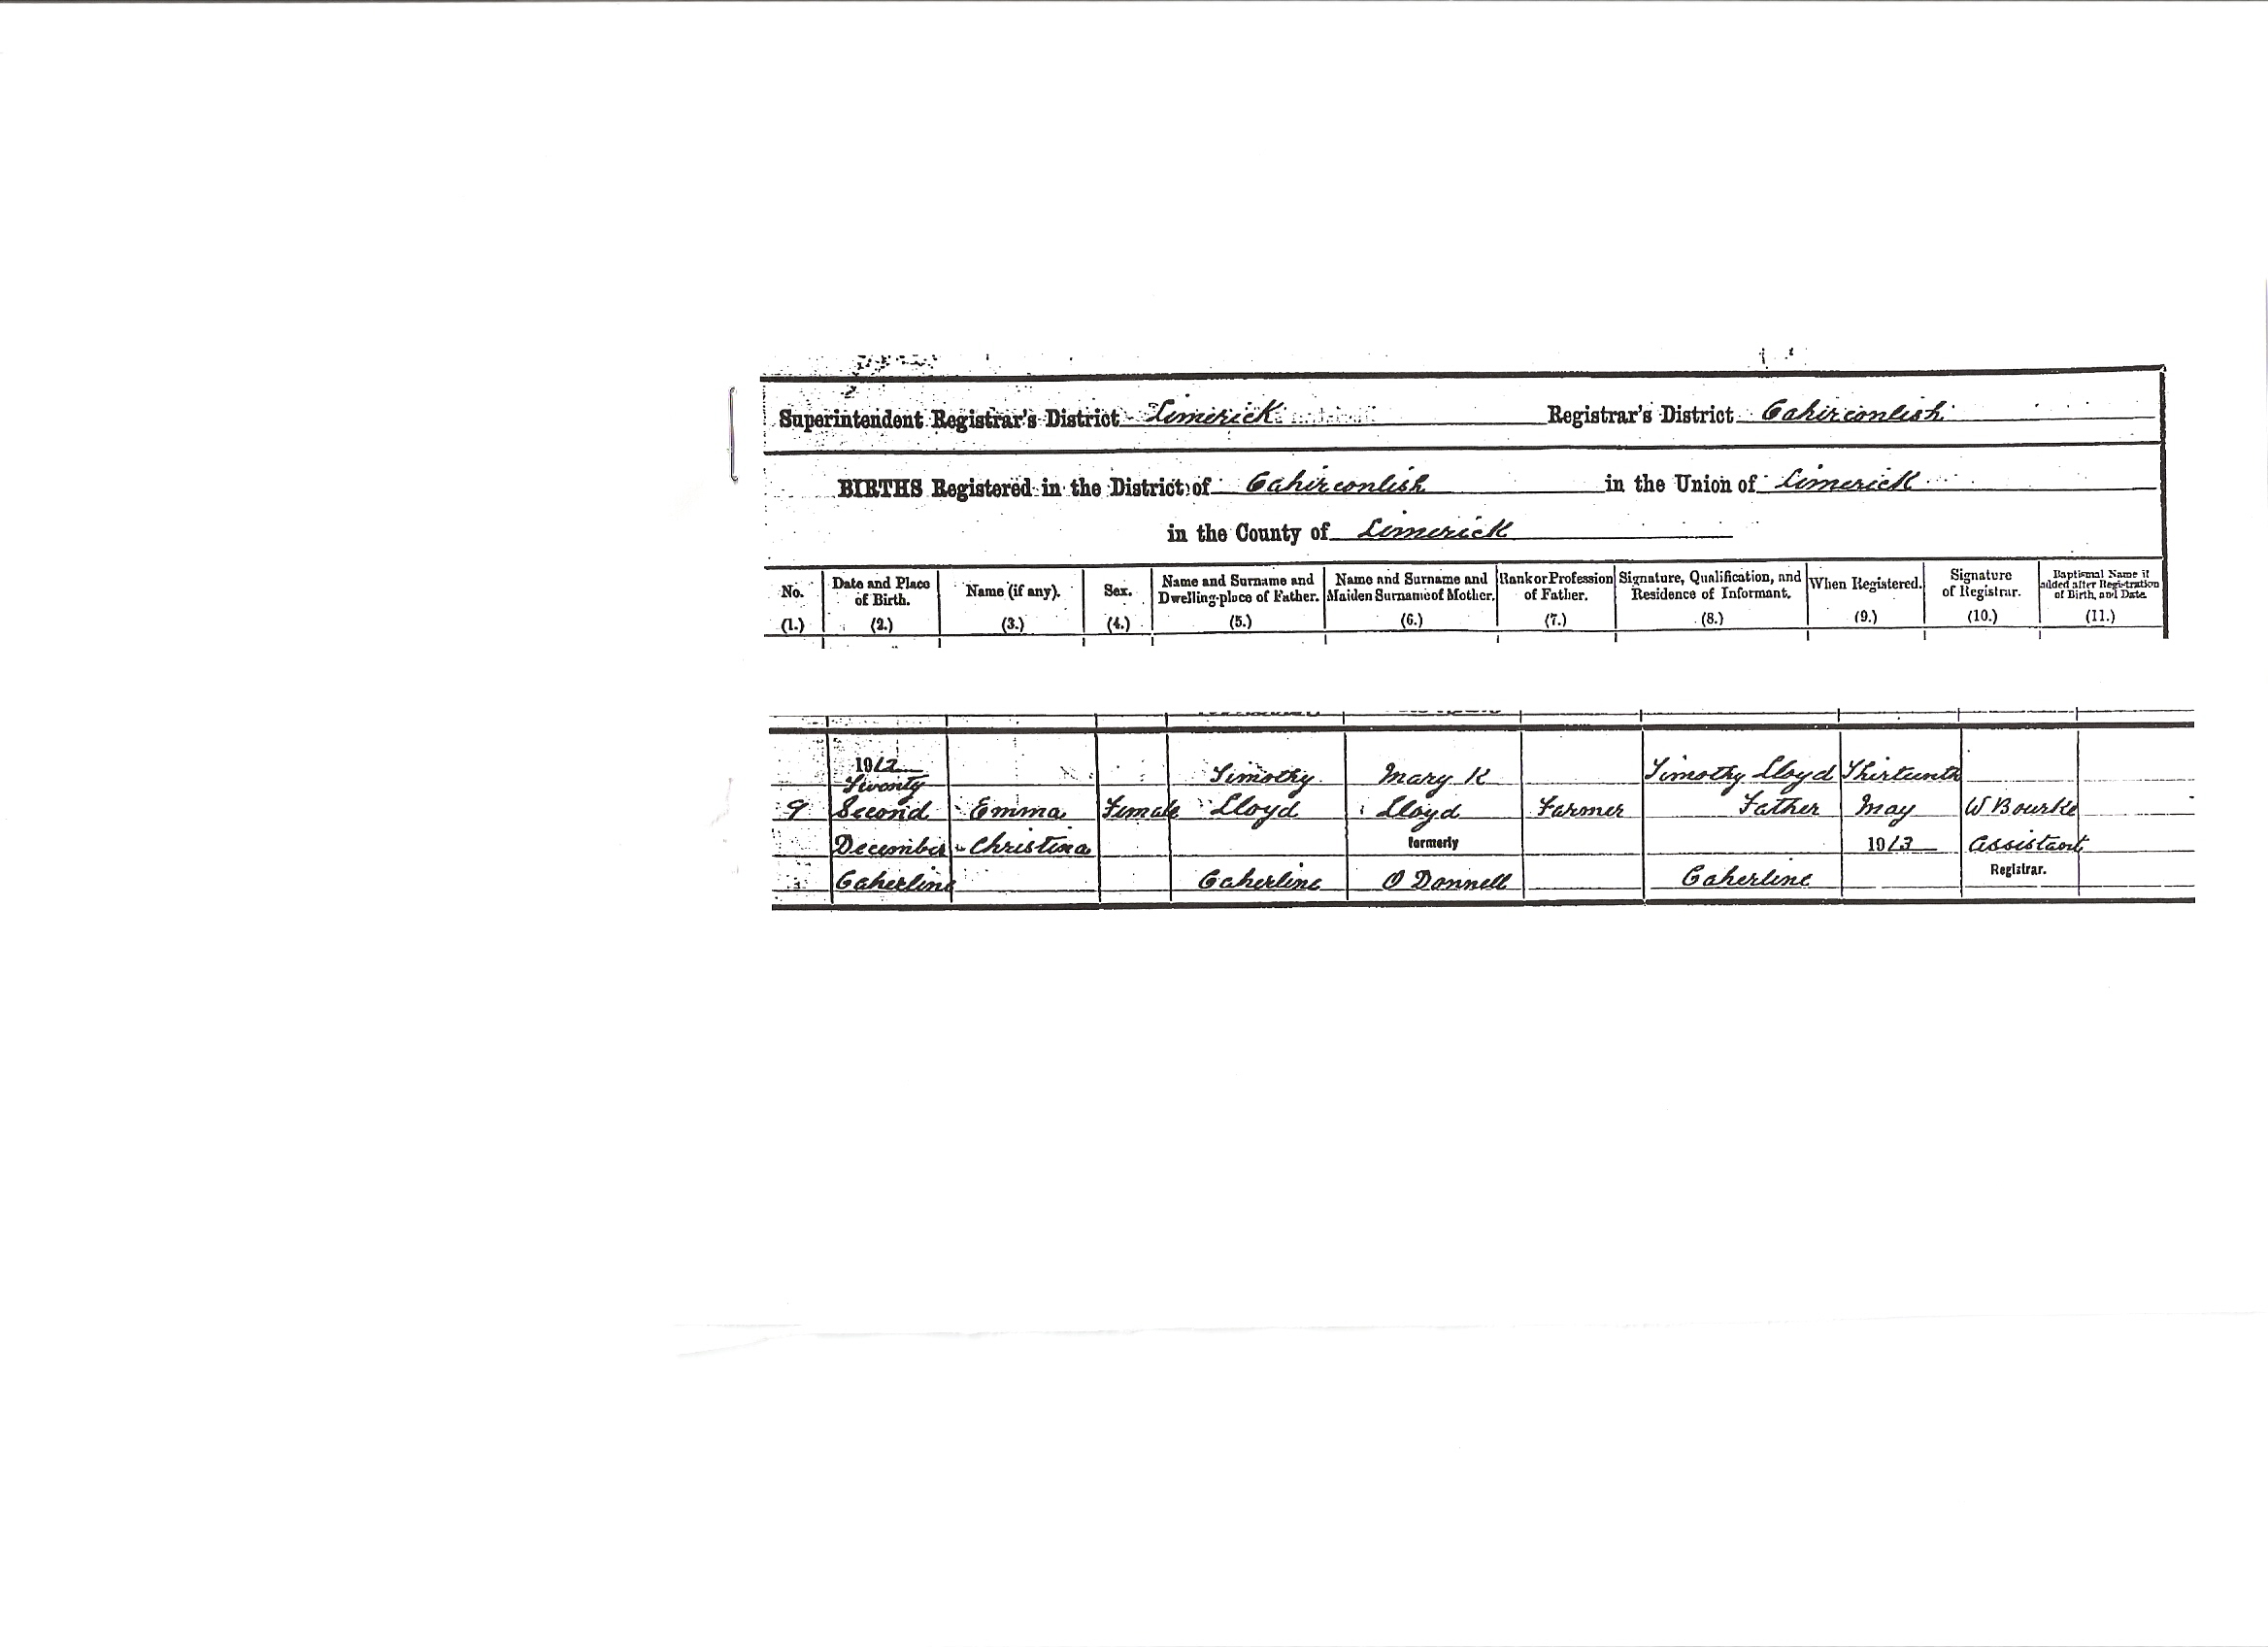 Superintendent Registrar's District Limerick Registrar's District Cahirconlish
BIRTHS Registered in the District of Cahirconlish in the Union of Limerick
in the County of Limerick
No. Date and Place of Birth. Name (if any). Sex. Name and Surname and Dwelling-place of Father. Name and Surname and Maiden Surname of Mother. Rank or Profession of Father. Signature, Qualification, and Residence of Informant. When Registered. Signature of Registrar. Baptismal Name if added after Registration of Birth, and Date.
(1.) (2.) (3.) (4.) (5.) (6.) (7.) (8.) (9.) (10.) (11.)
1912
Twenty Timothy Mary K Timothy Lloyd Thirteenth
9 Second Emma Female Lloyd Lloyd Farmer Father May W Bourke
December Christina formerly 1913 Assistant
Caherline Caherline O Donnell Caherline Registrar.